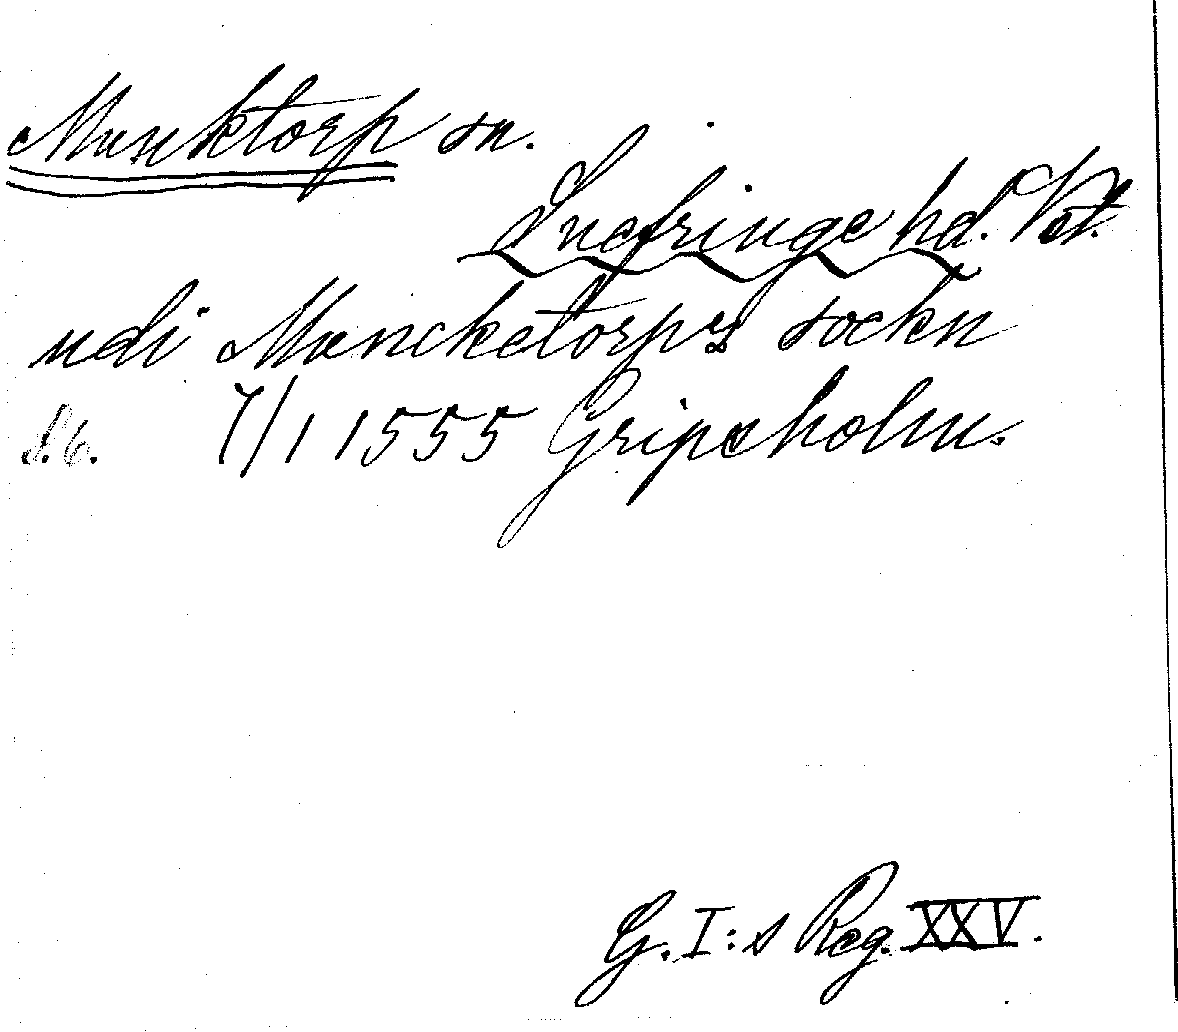 Munktorp sn.
Snefringe hd. Vstm.
udi Muncketorps sockn
S. 6. 7/1 1555 Gripsholm.
G. I:s Reg. XXV.